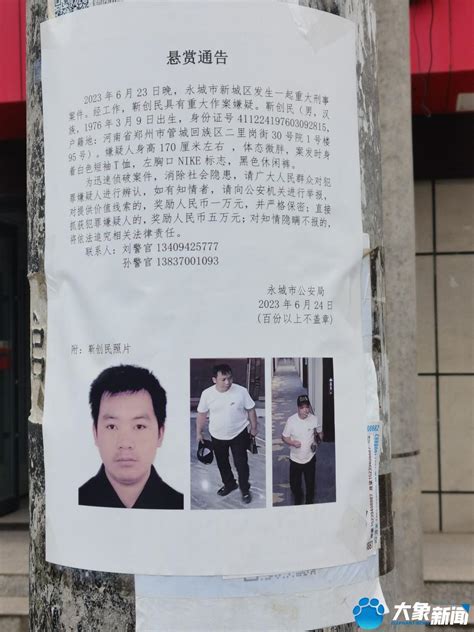 悬赏通告
2023年6月23日晚，永城市新城区发生一起重大刑事
案件。经工作，靳创民具有重大作案嫌疑。靳创民（男，汉
族，1976年3月9日出生，身份证号411224197603092815，
户籍地：河南省郑州市管城回族区二里岗街30号院1号楼
95号）。嫌疑人身高170厘米左右，体态微胖，案发时身
着白色短袖T恤，左胸口NIKE标志，黑色休闲裤。
为迅速侦破案件，消除社会隐患，请广大人民群众对犯
罪嫌疑人进行辨认，如有知情者，请向公安机关进行举报，
对提供价值线索的，奖励人民币一万元，并严格保密；直接
抓获犯罪嫌疑人的，奖励人民币五万元；对知情隐瞒不报的，
将依法追究相关法律责任。
联系人：刘警官 13409425777
孙警官 13837001093
永城市公安局
2023年6月24日
（百份以上不盖章）
附：靳创民照片
大象新闻